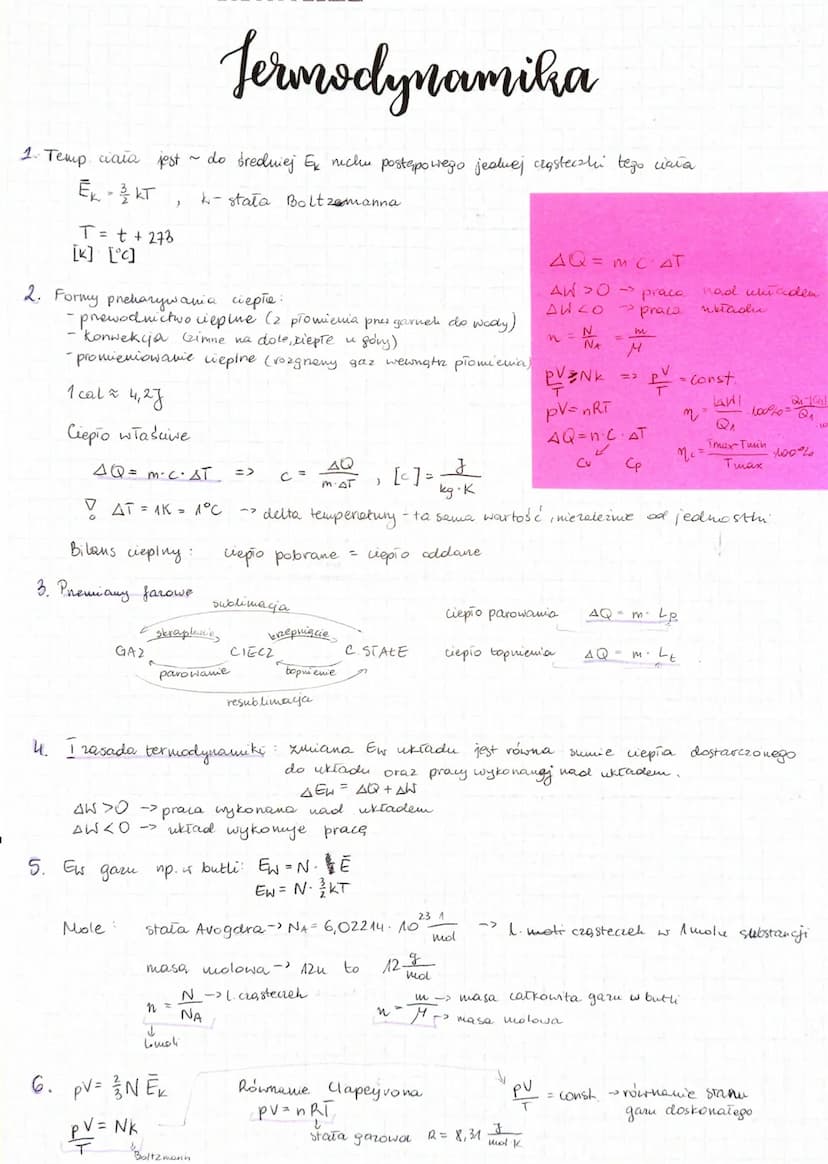 Termodynamika
1. Temp. ciała jest ~ do średniej Ek ruchu postępowego jednej cząsteczki tego ciała
Ēk = 3/2 kT , k - stała Boltzmanna
T = t + 273
[K] [°C]
ΔQ = m·c·ΔT
ΔW > 0 -> praca nad układem
ΔW < 0 -> praca układu
n = N/NA = m/μ
pV/T = Nk => pV/T = const.
pV = nRT
η = |ΔW|/Q1 · 100% =
ΔQ = n·C·ΔT
Cv Cp
ηc = Tmax-Tmin/Tmax · 100%
2. Formy przekazywania ciepła:
- przewodnictwo cieplne (z płomienia przez garnek do wody)
- konwekcja (zimne na dole, ciepłe u góry)
- promieniowanie cieplne (rozgrzany gaz wewnątrz płomienia)
1 cal ≈ 4,2J
Ciepło właściwe
ΔQ = m·c·ΔT => c = ΔQ/m·ΔT , [c] = J/kg·K
! ΔT = 1K = 1°C -> delta temperatury - ta sama wartość, niezależnie od jednostki
Bilans cieplny: ciepło pobrane = ciepło oddane
3. Przemiany fazowe
sublimacja
skraplanie krzepnięcie
GAZ CIECZ C. STAŁE
parowanie topnienie
resublimacja
ciepło parowania ΔQ = m·Lp
ciepło topnienia ΔQ = m·Lt
4. I zasada termodynamiki: zmiana Ew układu jest równa sumie ciepła dostarczonego
do układu oraz pracy wykonanej nad układem.
ΔEw = ΔQ + ΔW
ΔW > 0 -> praca wykonana nad układem
ΔW < 0 -> układ wykonuje pracę
5. Ew gazu np. w butli: Ew = N · Ē
Ew = N · 3/2 kT
Mole: stała Avogdra -> NA = 6,02214 · 10^23 1/mol -> l. cząsteczek w 1 molu substancji
masa molowa -> 12u to 12 g/mol
n = N/NA -> l. cząsteczek
l. moli
n = m/μ -> masa całkowita gazu w butli
-> masa molowa
6. pV = 2/3 N Ēk
pV/T = Nk
Boltzmann
Równanie Clapeyrona
pV = nRT
stała gazowa R = 8,31 J/mol K
pV/T = const. -> równanie stanu
gazu doskonałego